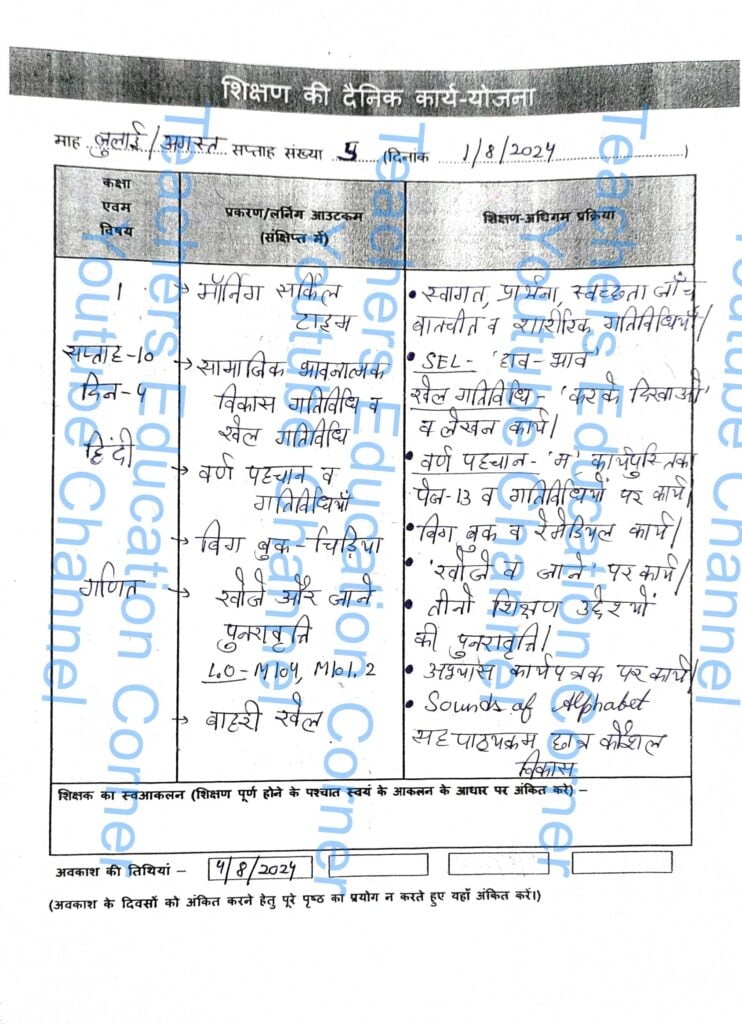 शिक्षण की दैनिक कार्य-योजना
माह जुलाई/अगस्त सप्ताह संख्या 5 (दिनांक 1/8/2024)
कक्षा एवम विषय
प्रकरण/लर्निंग आउटकम (संक्षिप्त में)
शिक्षण-अधिगम प्रक्रिया
1
सप्ताह-10
दिन-4
हिंदी
गणित
→ मॉर्निंग सर्किल
टाइम
→ सामाजिक भावनात्मक
विकास गतिविधि व
खेल गतिविधि
→ वर्ण पहचान व
गतिविधियाँ
→ बिग बुक - चिड़िया
→ खोजें और जाने
पुनरावृत्ति
L.O - M104, M101.2
→ बाहरी खेल
• स्वागत, प्रार्थना, स्वच्छता जाँच
बातचीत व शारीरिक गतिविधियाँ।
• SEL- 'हाव-भाव'
खेल गतिविधि - 'करके दिखाओ'
व लेखन कार्य।
• वर्ण पहचान - 'म' कार्यपुस्तिका
पेज-13 व गतिविधियों पर कार्य।
• बिग बुक व रेमेडियल कार्य।
• 'खोजें व जाने' पर कार्य।
• तीनों शिक्षण उद्देश्यों
की पुनरावृत्ति।
• अभ्यास कार्यपत्रक पर कार्य।
• Sounds of Alphabet
सह पाठ्यक्रम छात्र कौशल
विकास
शिक्षक का स्वआकलन (शिक्षण पूर्ण होने के पश्चात स्वयं के आकलन के आधार पर अंकित करें) –
अवकाश की तिथियां – 4/8/2024
(अवकाश के दिवसों को अंकित करने हेतु पूरे पृष्ठ का प्रयोग न करते हुए यहाँ अंकित करें।)
Teachers Education Corner
Youtube Channel
Teachers Education Corner
Youtube Channel
Teachers Education Corner
Youtube Channel
Youtube Channel